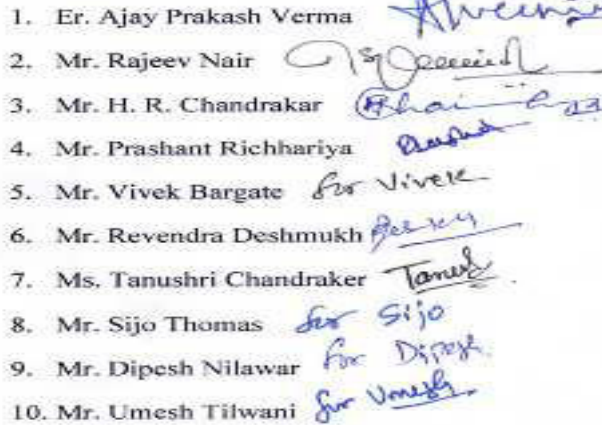 1. Er. Ajay Prakash Verma
2. Mr. Rajeev Nair
3. Mr. H. R. Chandrakar
4. Mr. Prashant Richhariya
5. Mr. Vivek Bargate for Vivek
6. Mr. Revendra Deshmukh
7. Ms. Tanushri Chandraker
8. Mr. Sijo Thomas for Sijo
9. Mr. Dipesh Nilawar for Dipesh
10. Mr. Umesh Tilwani for Umesh